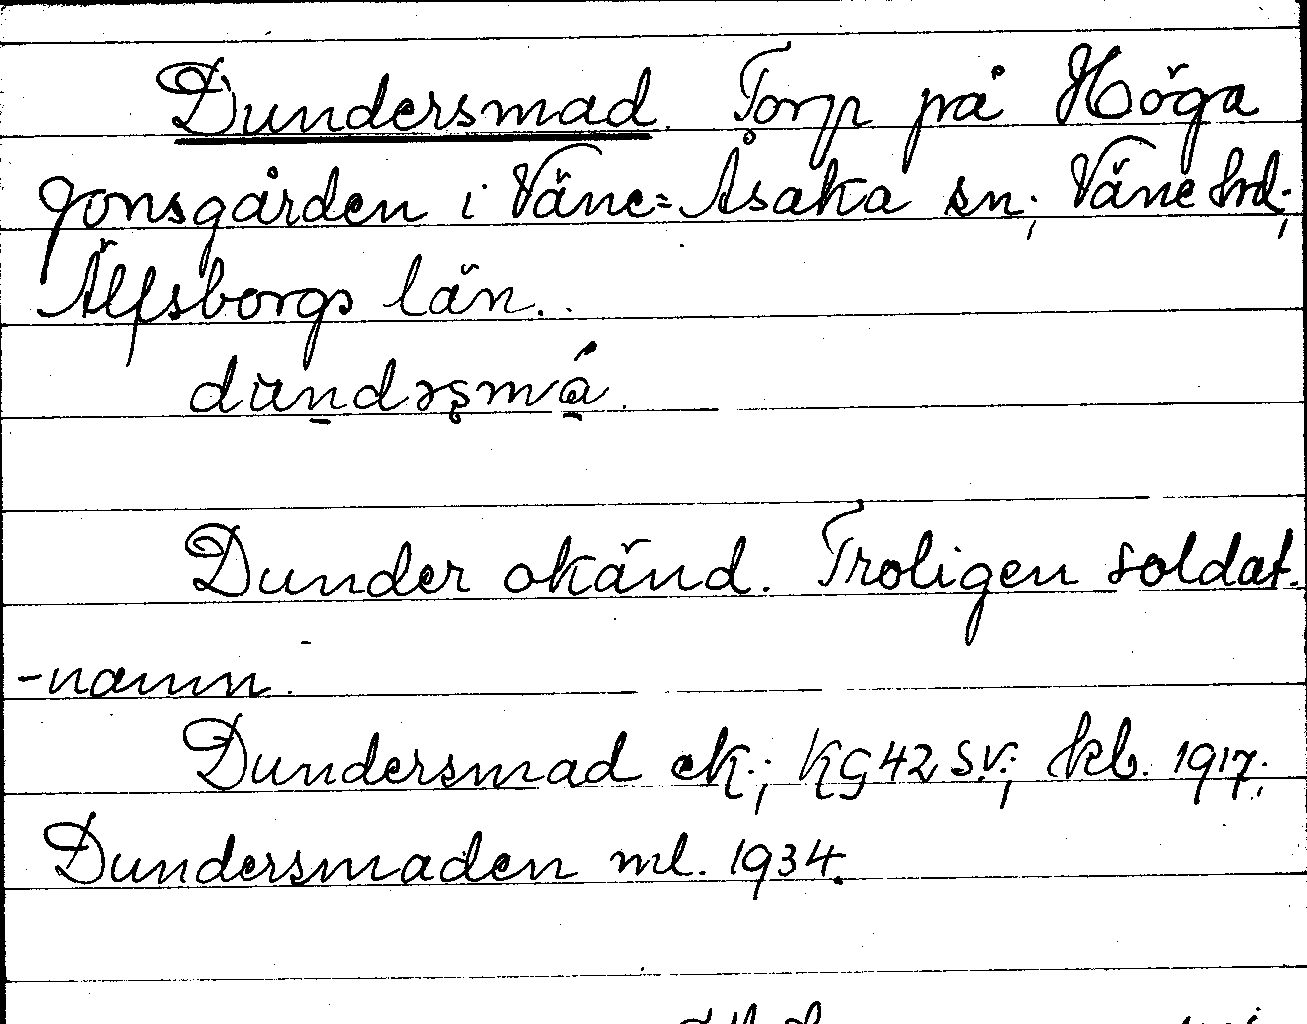 Dundersmad. Torp på Höga
Jonsgården i Väne=Åsaka sn; Väne hrd;
Älfsborgs län.
dundəsmá.
Dunder okänd. Troligen soldat-
-namn.
Dundersmad ek.; KG 42 S.V.; kb. 1917;
Dundersmaden ml. 1934.